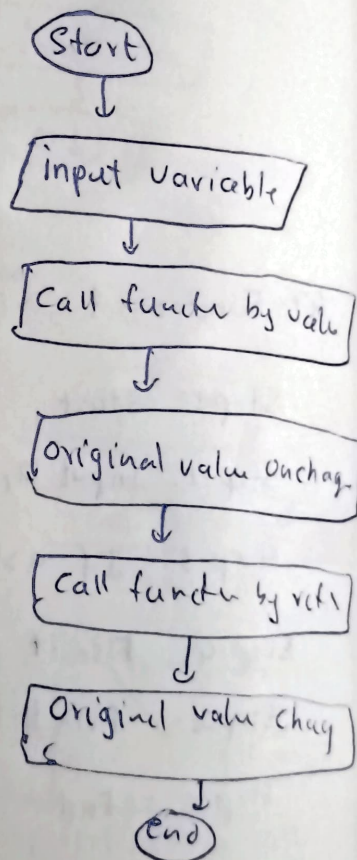 Start
input variable
Call functn by valu
Original value unchag
Call functn by ref
Original valu chag
End